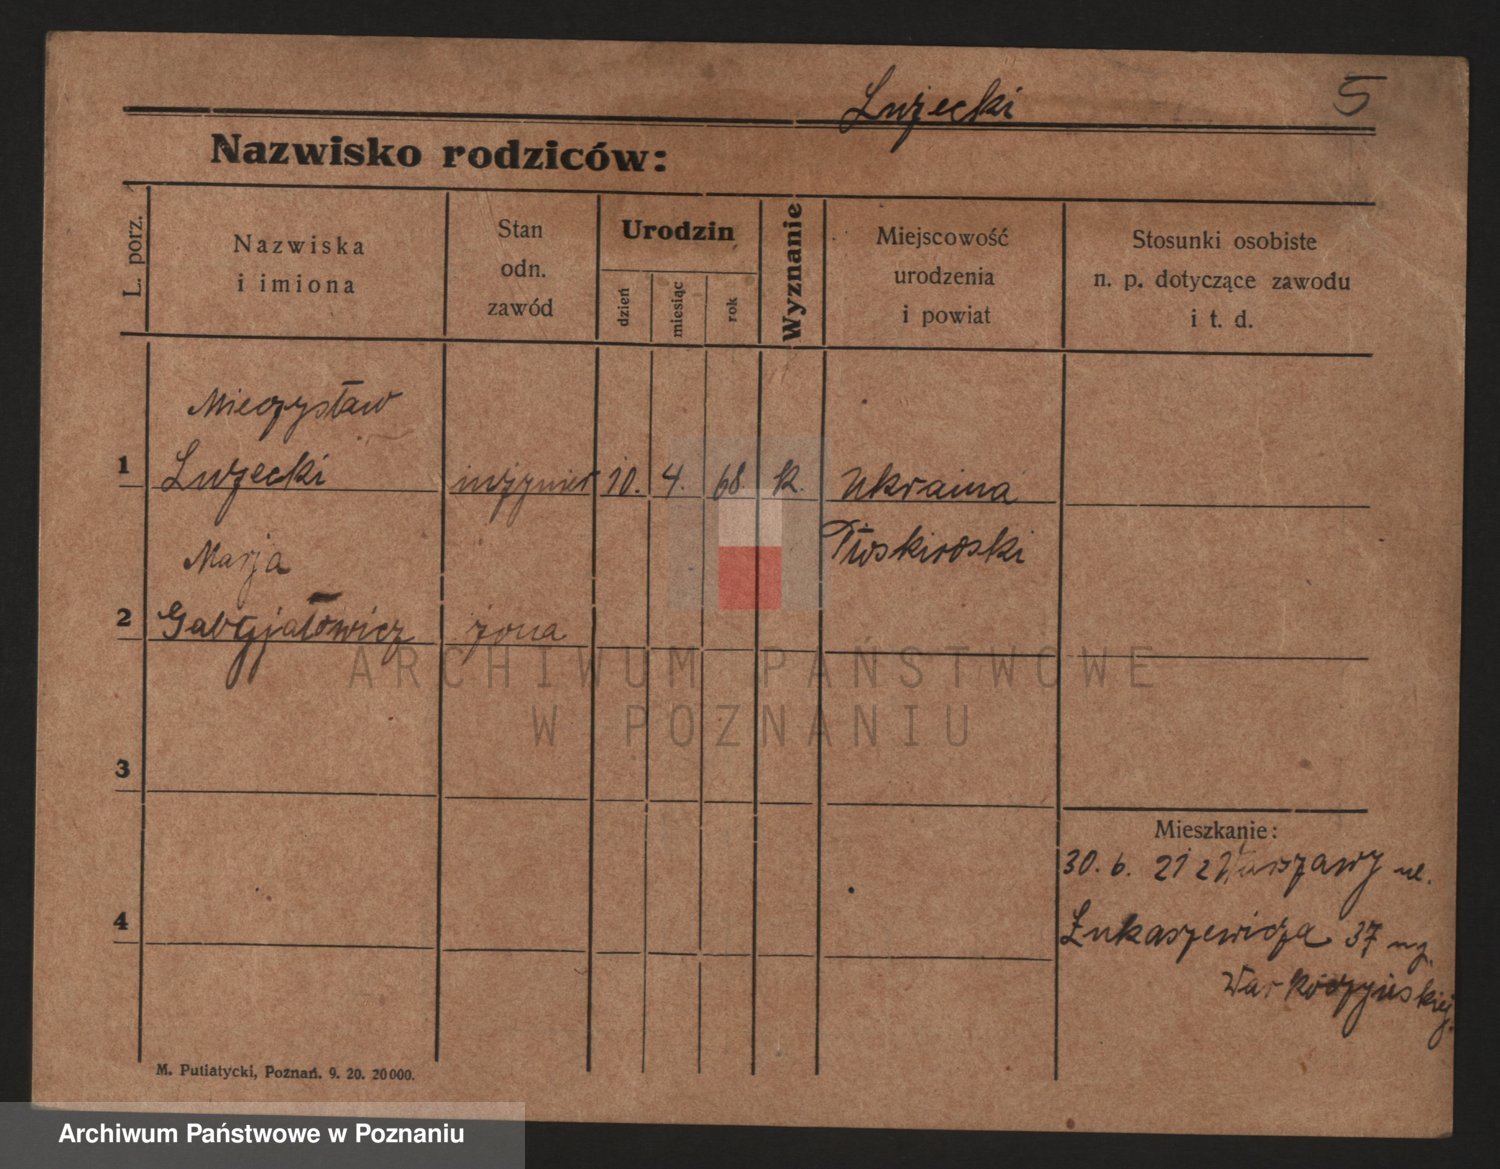 Lużecki
5
Nazwisko rodziców:
L. porz.
Nazwiska
i imiona
Stan
odn.
zawód
Urodzin
dzień
miesiąc
rok
Wyznanie
Miejscowość
urodzenia
i powiat
Stosunki osobiste
n. p. dotyczące zawodu
i t. d.
Mieczysław
1 Lużecki inżynier 10. 4. 68. k. Ukraina
Marja Płoskiroski
2 żona
3
Mieszkanie:
30. 6. 21 z Warszawy ul.
4 Łukaszewicza 37
M. Putiatycki, Poznań. 9. 20. 20000.
ARCHIWUM PAŃSTWOWE
W POZNANIU
Archiwum Państwowe w Poznaniu